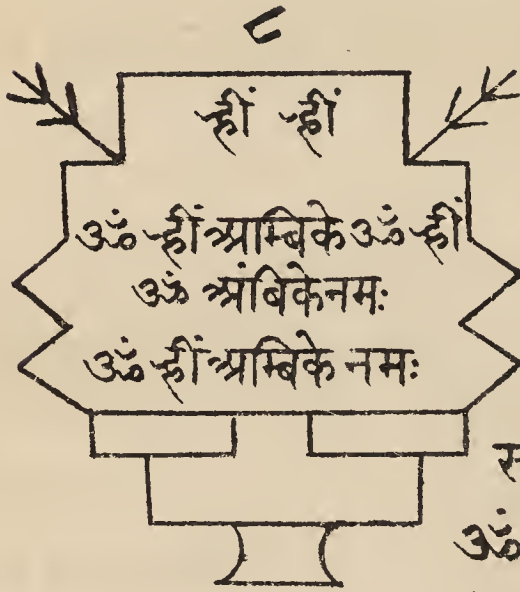 ८
ह्रीं ह्रीं
ॐ ह्रीं अम्बिके ॐ ह्रीं
ॐ अंबिके नमः
ॐ ह्रीं अम्बिके नमः
ॐ